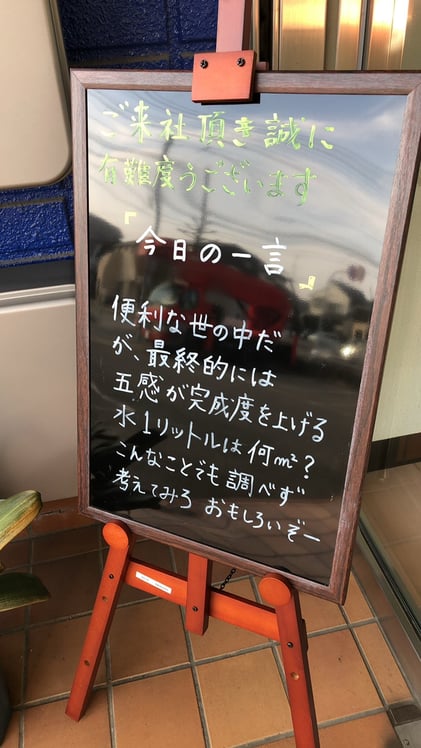 ご来社頂き誠に
有難度うございます
『今日の一言』
便利な世の中だ
が、最終的には
五感が完成度を上げる
水1リットルは何m²?
こんなことでも調べず
考えてみろ おもしろいぞー